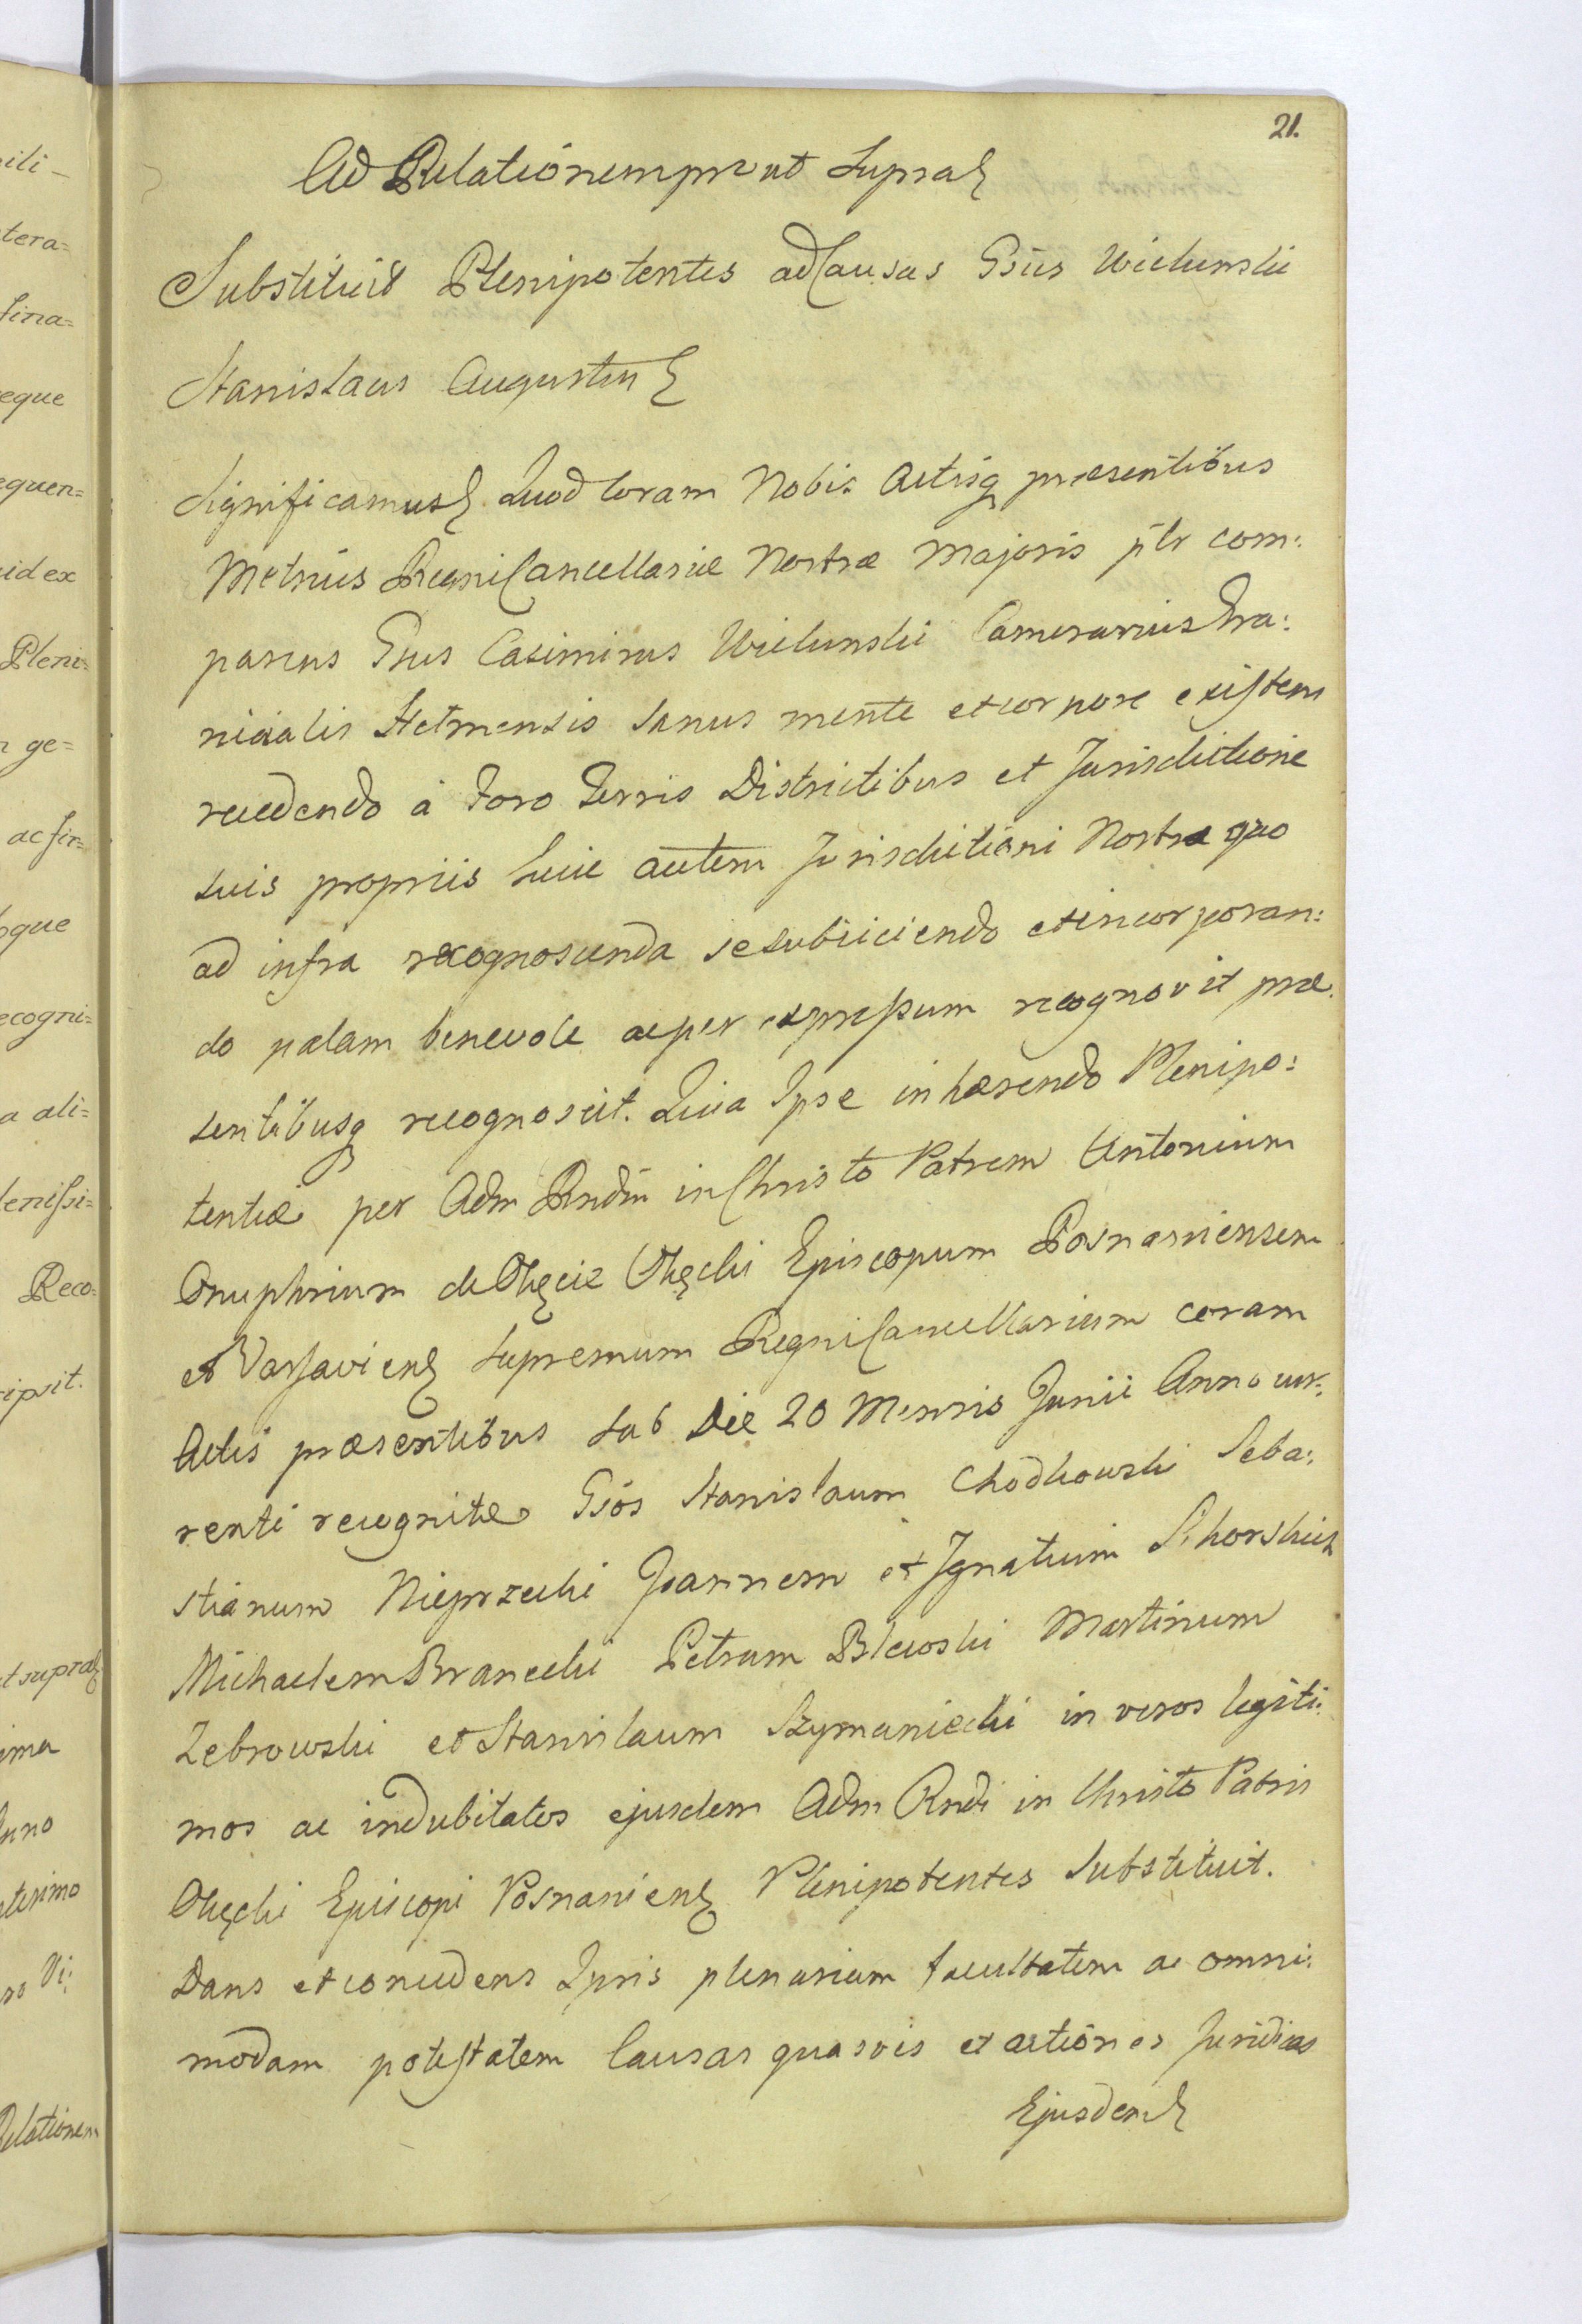 21.
Ad Relationem prout Supra
Substituit Plenipotentes ad Causas Gsus Wielunski
Stanislaus Augustus
Significamus Quod Coram Nobis Actisq praesentibus
Metrices Regni Cancellariae Nostrae Majoris plr com:
parens Gsus Casimirus Wielunski Camerarius Gra:
nicialis sanus mente et corpore existens
recedendo à Foro Terris Districtibus et Jurisdictione
suis propriis huic autem Jurisdictioni Nostrae quo
ad infra recognoscenda se subiiciendo et incorporan:
do palam benevole ac per expressum recognovit prae
sentibusq recognoscit. Quia Ipse inhaerendo Plenipo:
tentiae per Adm Rndm in Christo Patrem Antonium
Onuphrium de Okęcie Okęcki Episcopum Posnaniensem
et Varsavien Supremum Regni Cancellarium coram
Actis praesentibus sub Die 20 Mensis Junii Anno cur:
renti recognitae Gsos Stanislaum Chodkowski Seba:
stianum Nieprzecki Joannem et Ignatium Sikorskich
Michaelem Branecki Petrum Martinum
Zebrowski et Stanislaum Szymaniecki in veros legiti:
mos ac indubitatos ejusdem Adm Rndi in Christo Patris
Okęcki Episcopi Posnanien Plenipotentes substituit.
Dans et concedens Ipsis plenariam facultatem ac omni:
modam potestatem Causas quasvis et actiones Juridicas
Ejusdem